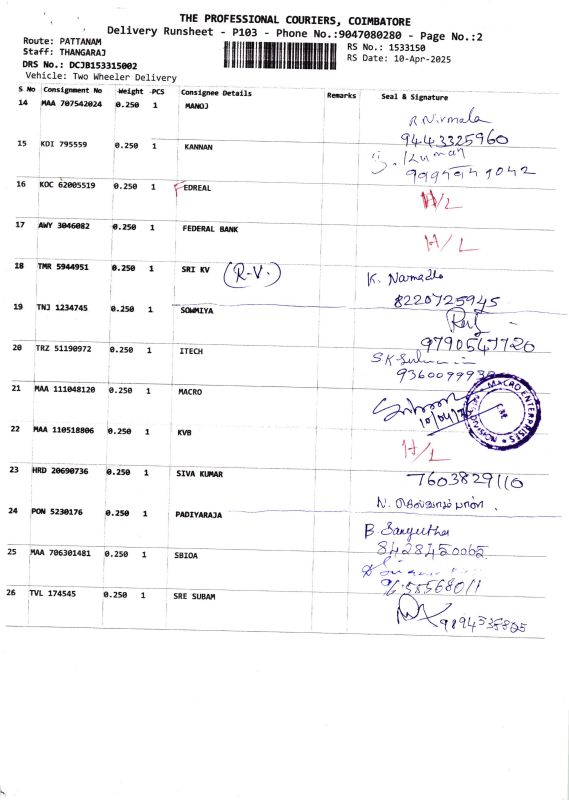 THE PROFESSIONAL COURIERS, COIMBATORE
Delivery Runsheet - P103 - Phone No.:9047080280 - Page No.:2
Route: PATTANAM
Staff: THANGARAJ
DRS No.: DCJB153315002
Vehicle: Two Wheeler Delivery
RS No.: 1533150
RS Date: 10-Apr-2025
S No Consignment No Weight PCS Consignee Details Remarks Seal & Signature
14 MAA 707542024 0.250 1 MANOJ R. Nirmala
9443325960
15 KDI 795559 0.250 1 KANNAN Kumar
16 KOC 62005519 0.250 1 FEDREAL H/L
17 AWY 3046082 0.250 1 FEDERAL BANK H/L
18 TMR 5944951 0.250 1 SRI KV (R.V.) K. Narmadha
8220725945
19 TNJ 1234745 0.250 1 SOWMIYA
9790547726
20 TRZ 51190972 0.250 1 ITECH S.K.
21 MAA 111048120 0.250 1 MACRO
MACRO ENTERPRISES
22 MAA 110518806 0.250 1 KVB H/L
23 HRD 20690736 0.250 1 SIVA KUMAR 7603829110
24 PON 5230176 0.250 1 PADIYARAJA B. Sangeetha
8428450065
25 MAA 706301481 0.250 1 SBIOA
26 TVL 174545 0.250 1 SRE SUBAM
9894538805